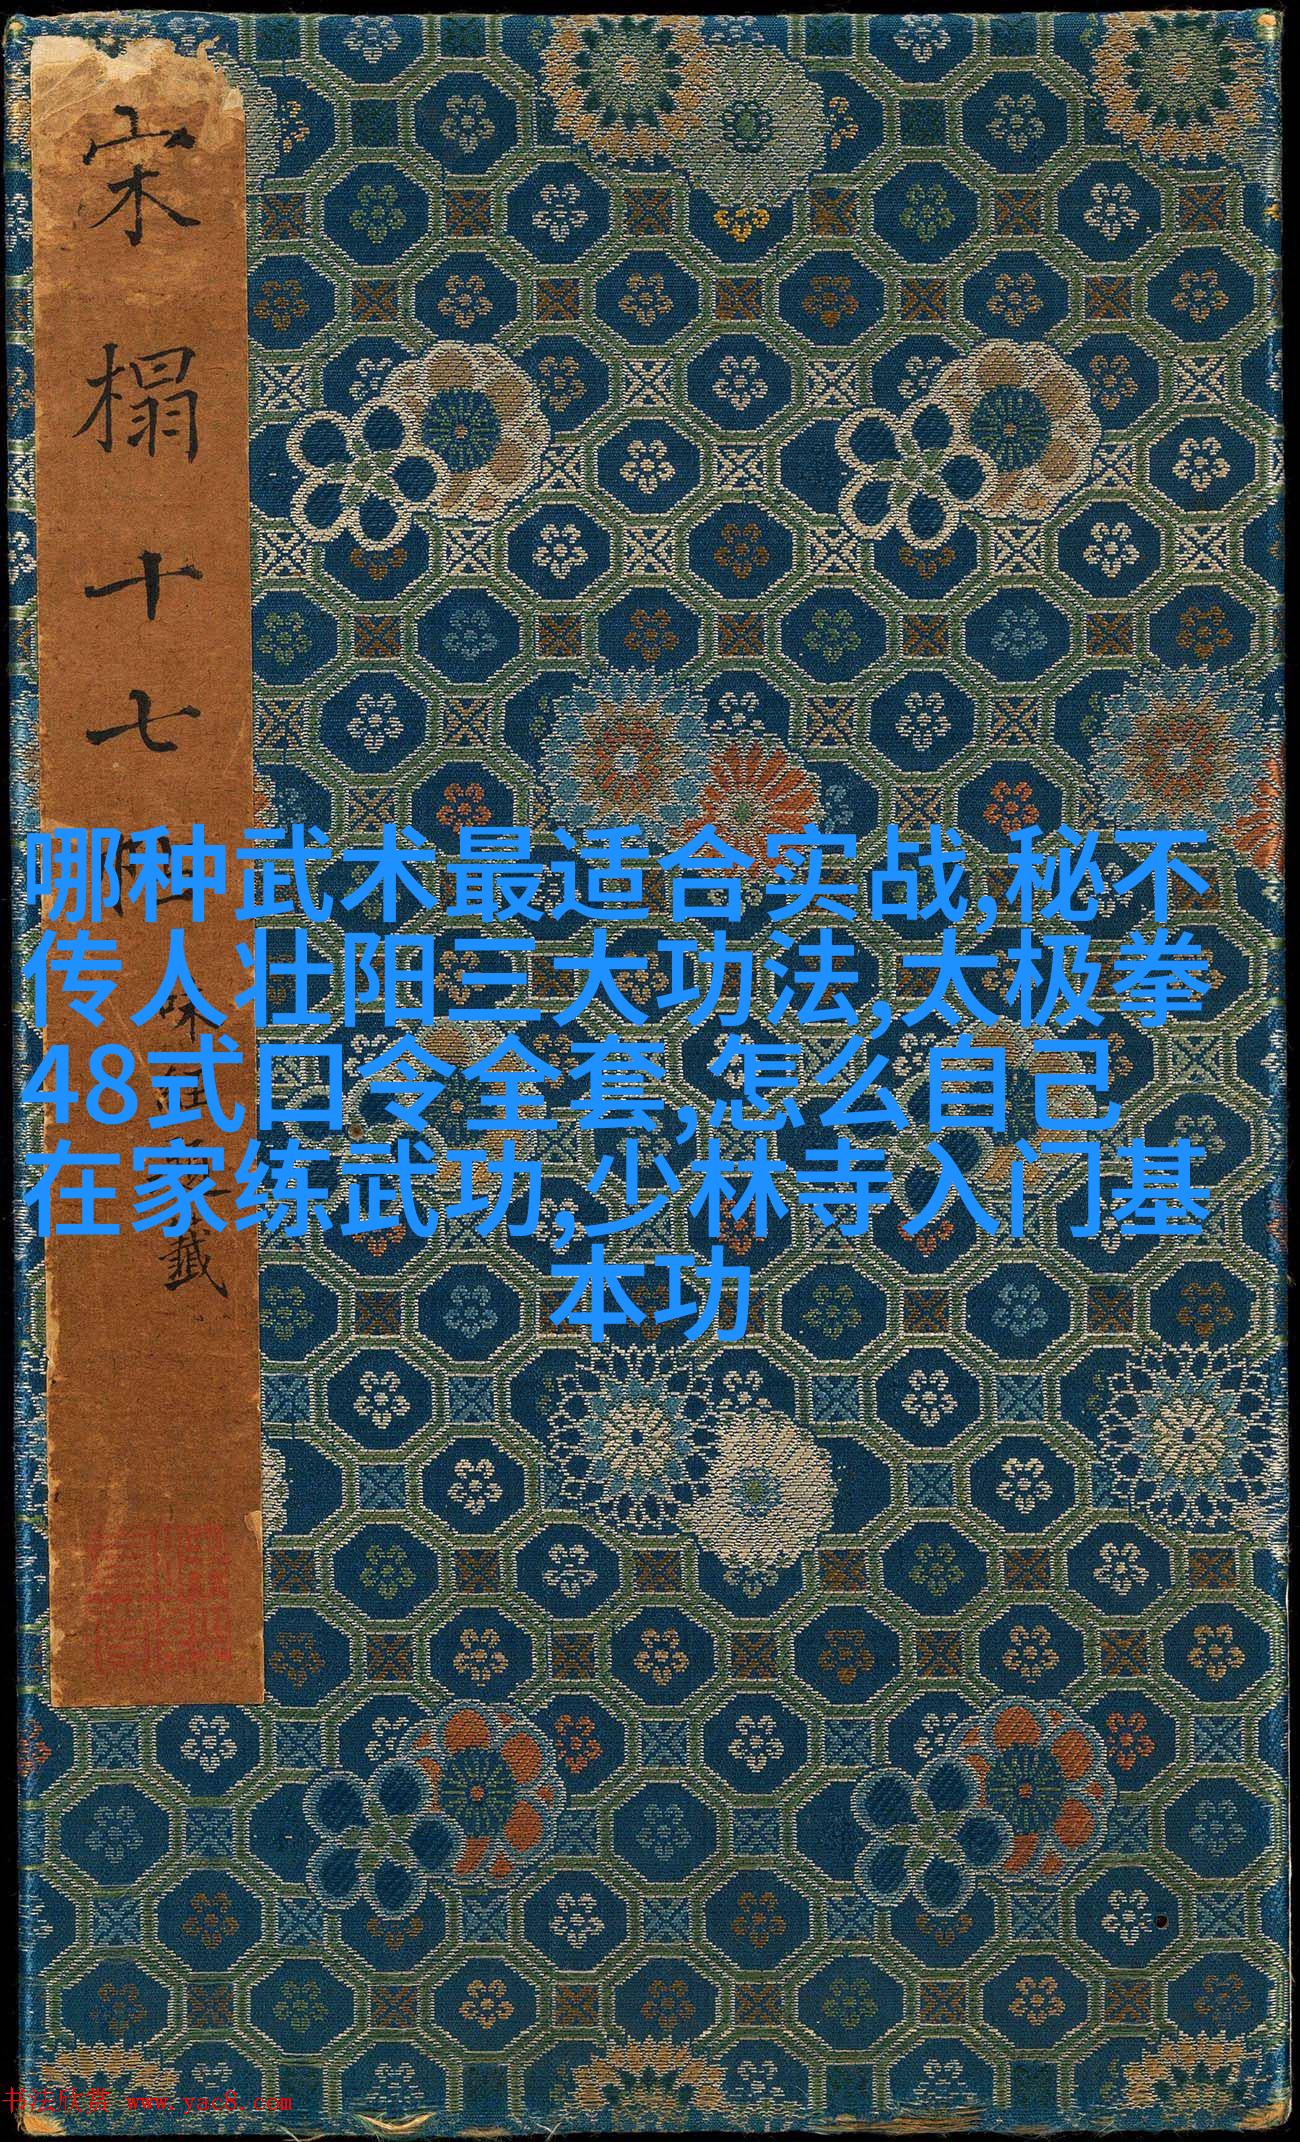 宋榻十七帖
哪种武术最适合实战,秘不
传人壮阳三大功法,太极拳
48式口令全套,怎么自己
在家练武功,少林寺入门基
本功
书法欣赏 www.yac8.com